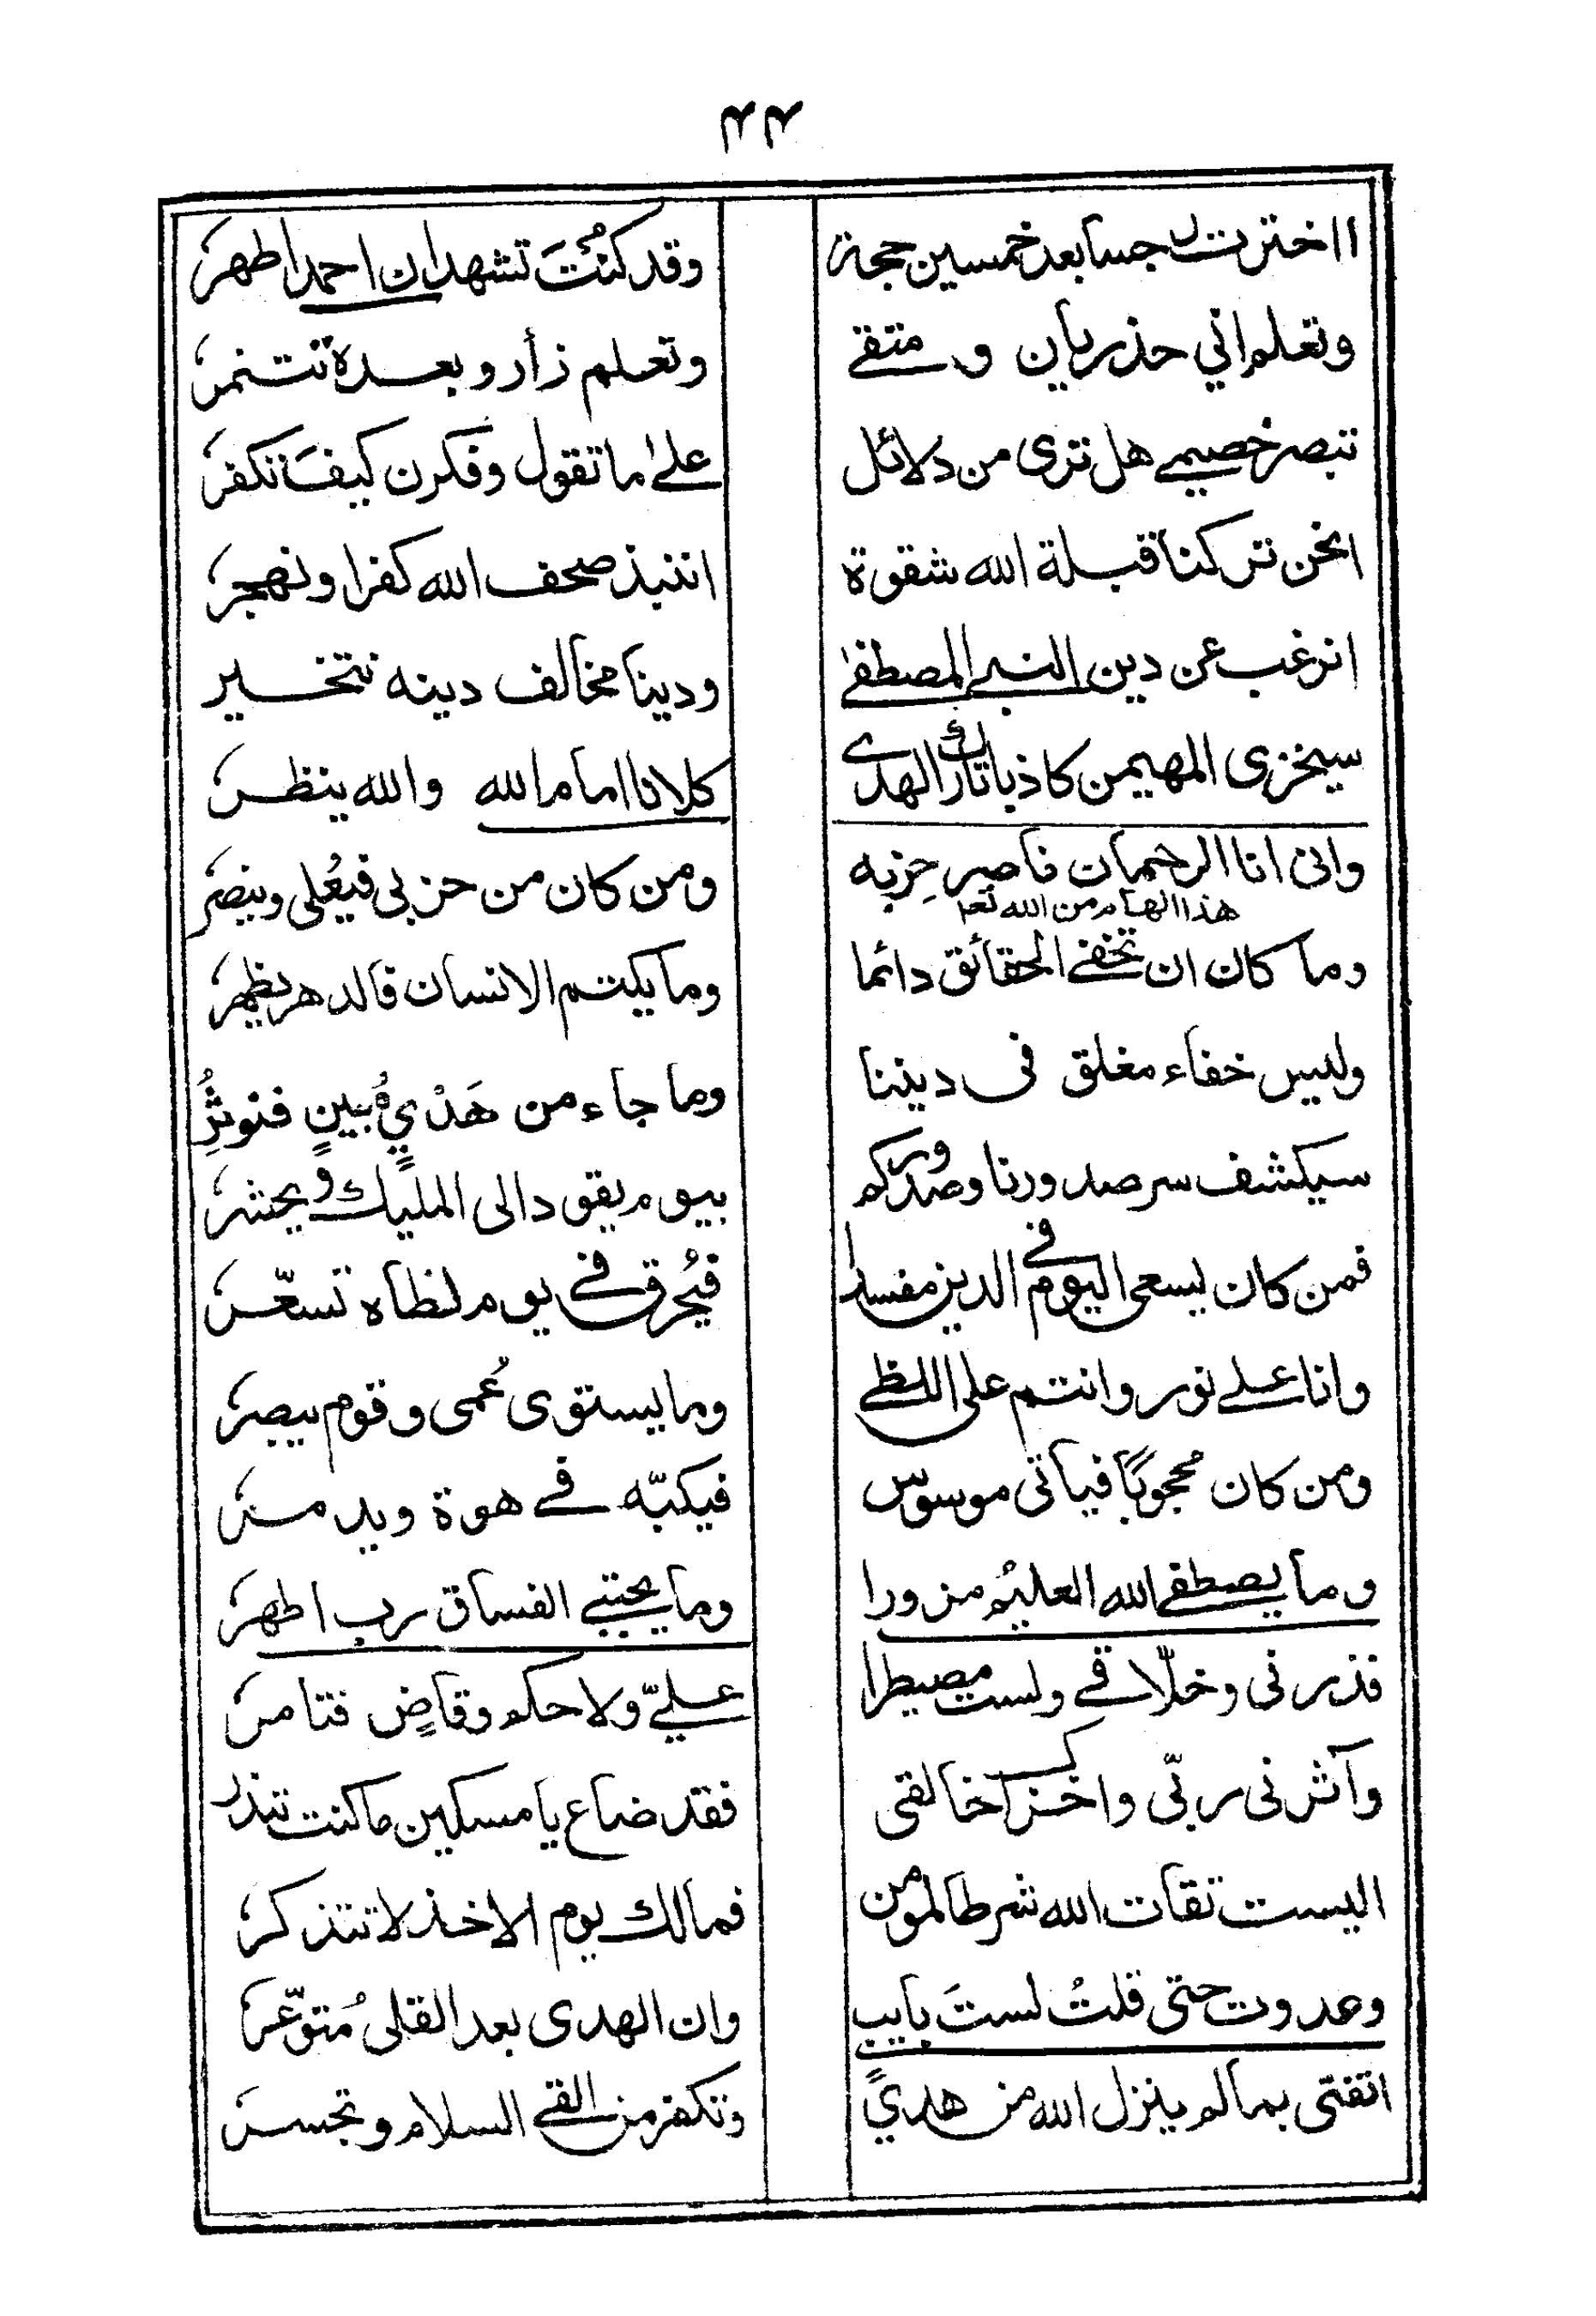 ٢٢
أاخترت رجسا بعد خمسين حجة وقد كنتَ تشهد ان احمد اطهر
وتعلم اني حذريان و متقي وتعلم زأر وبعده تتنمر
تبصر خصيمي هل ترى من دلائل على ما تقول وفكرن كيف تكفر
انحن تركنا قبلة الله شقوة اننبذ صحف الله كفرا ونهجر
انرغب عن دين النبي المصطفى ودينا مخالف دينه نتخير
سيخزى المهيمن كاذبا تارك الهدى كلانا امام الله والله ينظر
وانى انا الرحمان ناصر حِزبه ومن كان من حزبى فيُعلى وينصر
هذا الهام من الله تعا
وما كان ان تخفى الحقائق دائما وما يكتم الانسان فالدهر يظهر
وليس خفاء مغلق فى ديننا وما جاء من هَدْيٍ مُبينٍ فنوثِرُ
سيكشف سر صدورنا وصدوركم بيوم يقود الى المليك ويحشر
فمن كان يسعى اليوم فى الدين مفسدا فيُحرق فى يوم لظاه تسعّر
وانا على نور وانتم على اللظى وما يستوى عُمى وقوم يبصر
ومن كان محجوبًا فياتى موسوس فيكبّه فى هوة ويدمر
وما يصطفى الله العليمُ مزورا وما يجتبى الفساق رب اطهر
فذرنى وخلّاقى ولست مصيطرا علىّ ولا حكم وقاضٍ فتامر
وآثرنى ربّى واخزاك خالقى فقد ضاع يا مسكين ما كنت تبذر
اليست تقات الله شرطا لمؤمن فمالك يوم الاخذ لا تتذكر
وعدوت حتى قلتُ لستَ بايب وان الهدى بعد القلى مُتوعّر
اتفتى بما لم ينزل الله من هدىً وتكفر من القى السلام وتجسر